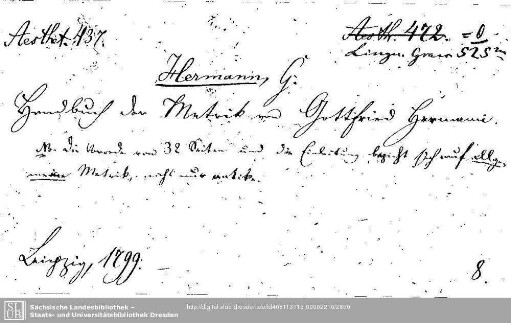 Aesthet. 437.
Aesth. 472. = 0
Lingu. Graec 525 m
Hermann, G.
Handbuch der Metrik von Gottfried Hermann.
NB. Die Vorrede von 32 Seiten und die Einleitung bezieht sich auf allge-
meine Metrik, nicht nur antike.
Leipzig, 1799.
8.
Sächsische Landesbibliothek –
Staats- und Universitätsbibliothek Dresden